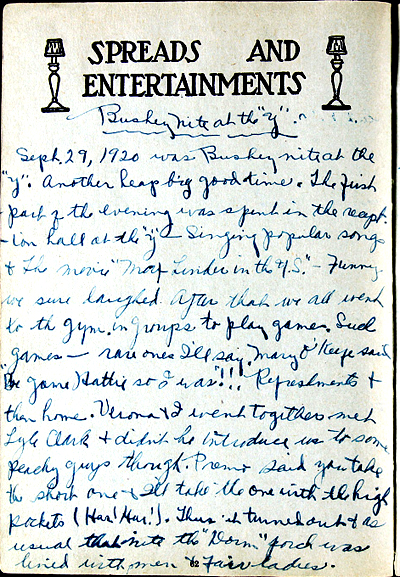 SPREADS AND
ENTERTAINMENTS
Bushey nite at the "Y".
Sept. 29, 1920 was Bushey nite at the
"Y". Another heap big good time. The first
part of the evening was spent in the recept-
-ion hall at the "Y" - Singing popular songs
& the movie "Max Linder in the U.S." - Funny
we sure laughed. After that we all went
to the gym. in groups to play games. Such
games - rare ones I'll say. Mary O'Keefe said
"Be game Hattie so I was"!!! Refreshments &
then home. Verona & I went together met
Lyle Clark & didn't he introduce us to some
peachy guys though. said you take
the short one & I'll take the one with the high
pockets (Har! Har!). Thus it turned out & as
usual that nite the "Dorm" porch was
lined with men & Fair ladies.
82